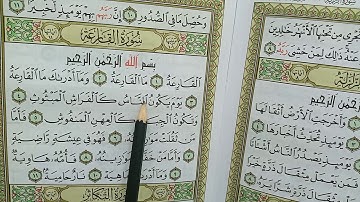 وَحُصِّلَ مَا فِي الصُّدُورِ ۝١٠ إِنَّ رَبَّهُم بِهِمْ يَوْمَئِذٍ لَّخَبِيرٌ ۝١١
سُورَةُ الْقَارِعَةِ
بِسْمِ اللَّهِ الرَّحْمَٰنِ الرَّحِيمِ
الْقَارِعَةُ ۝١ مَا الْقَارِعَةُ ۝٢ وَمَا أَدْرَاكَ مَا الْقَارِعَةُ
۝٣ يَوْمَ يَكُونُ النَّاسُ كَالْفَرَاشِ الْمَبْثُوثِ ۝٤
وَتَكُونُ الْجِبَالُ كَالْعِهْنِ الْمَنفُوشِ ۝٥ فَأَمَّا
مَن ثَقُلَتْ مَوَازِينُهُ ۝٦ فَهُوَ فِي عِيشَةٍ رَّاضِيَةٍ
۝٧ وَأَمَّا مَنْ خَفَّتْ مَوَازِينُهُ ۝٨ فَأُمُّهُ هَاوِيَةٌ
۝٩ وَمَا أَدْرَاكَ مَا هِيَهْ ۝١٠ نَارٌ حَامِيَةٌ ۝١١
سُورَةُ التَّكَاثُرِ
تَجْرِي مِن تَحْتِهَا الْأَنْهَارُ خَالِدِينَ
عَنْهُ ذَٰلِكَ لِمَنْ خَشِيَ
الرَّحْمَٰنِ الرَّحِيمِ
وَأَخْرَجَتِ الْأَرْضُ أَثْقَالَهَا
يَوْمَئِذٍ تُحَدِّثُ أَخْبَارَهَا
يَوْمَئِذٍ يَصْدُرُ النَّاسُ أَشْتَاتًا
مِثْقَالَ ذَرَّةٍ خَيْرًا
مِثْقَالَ ذَرَّةٍ